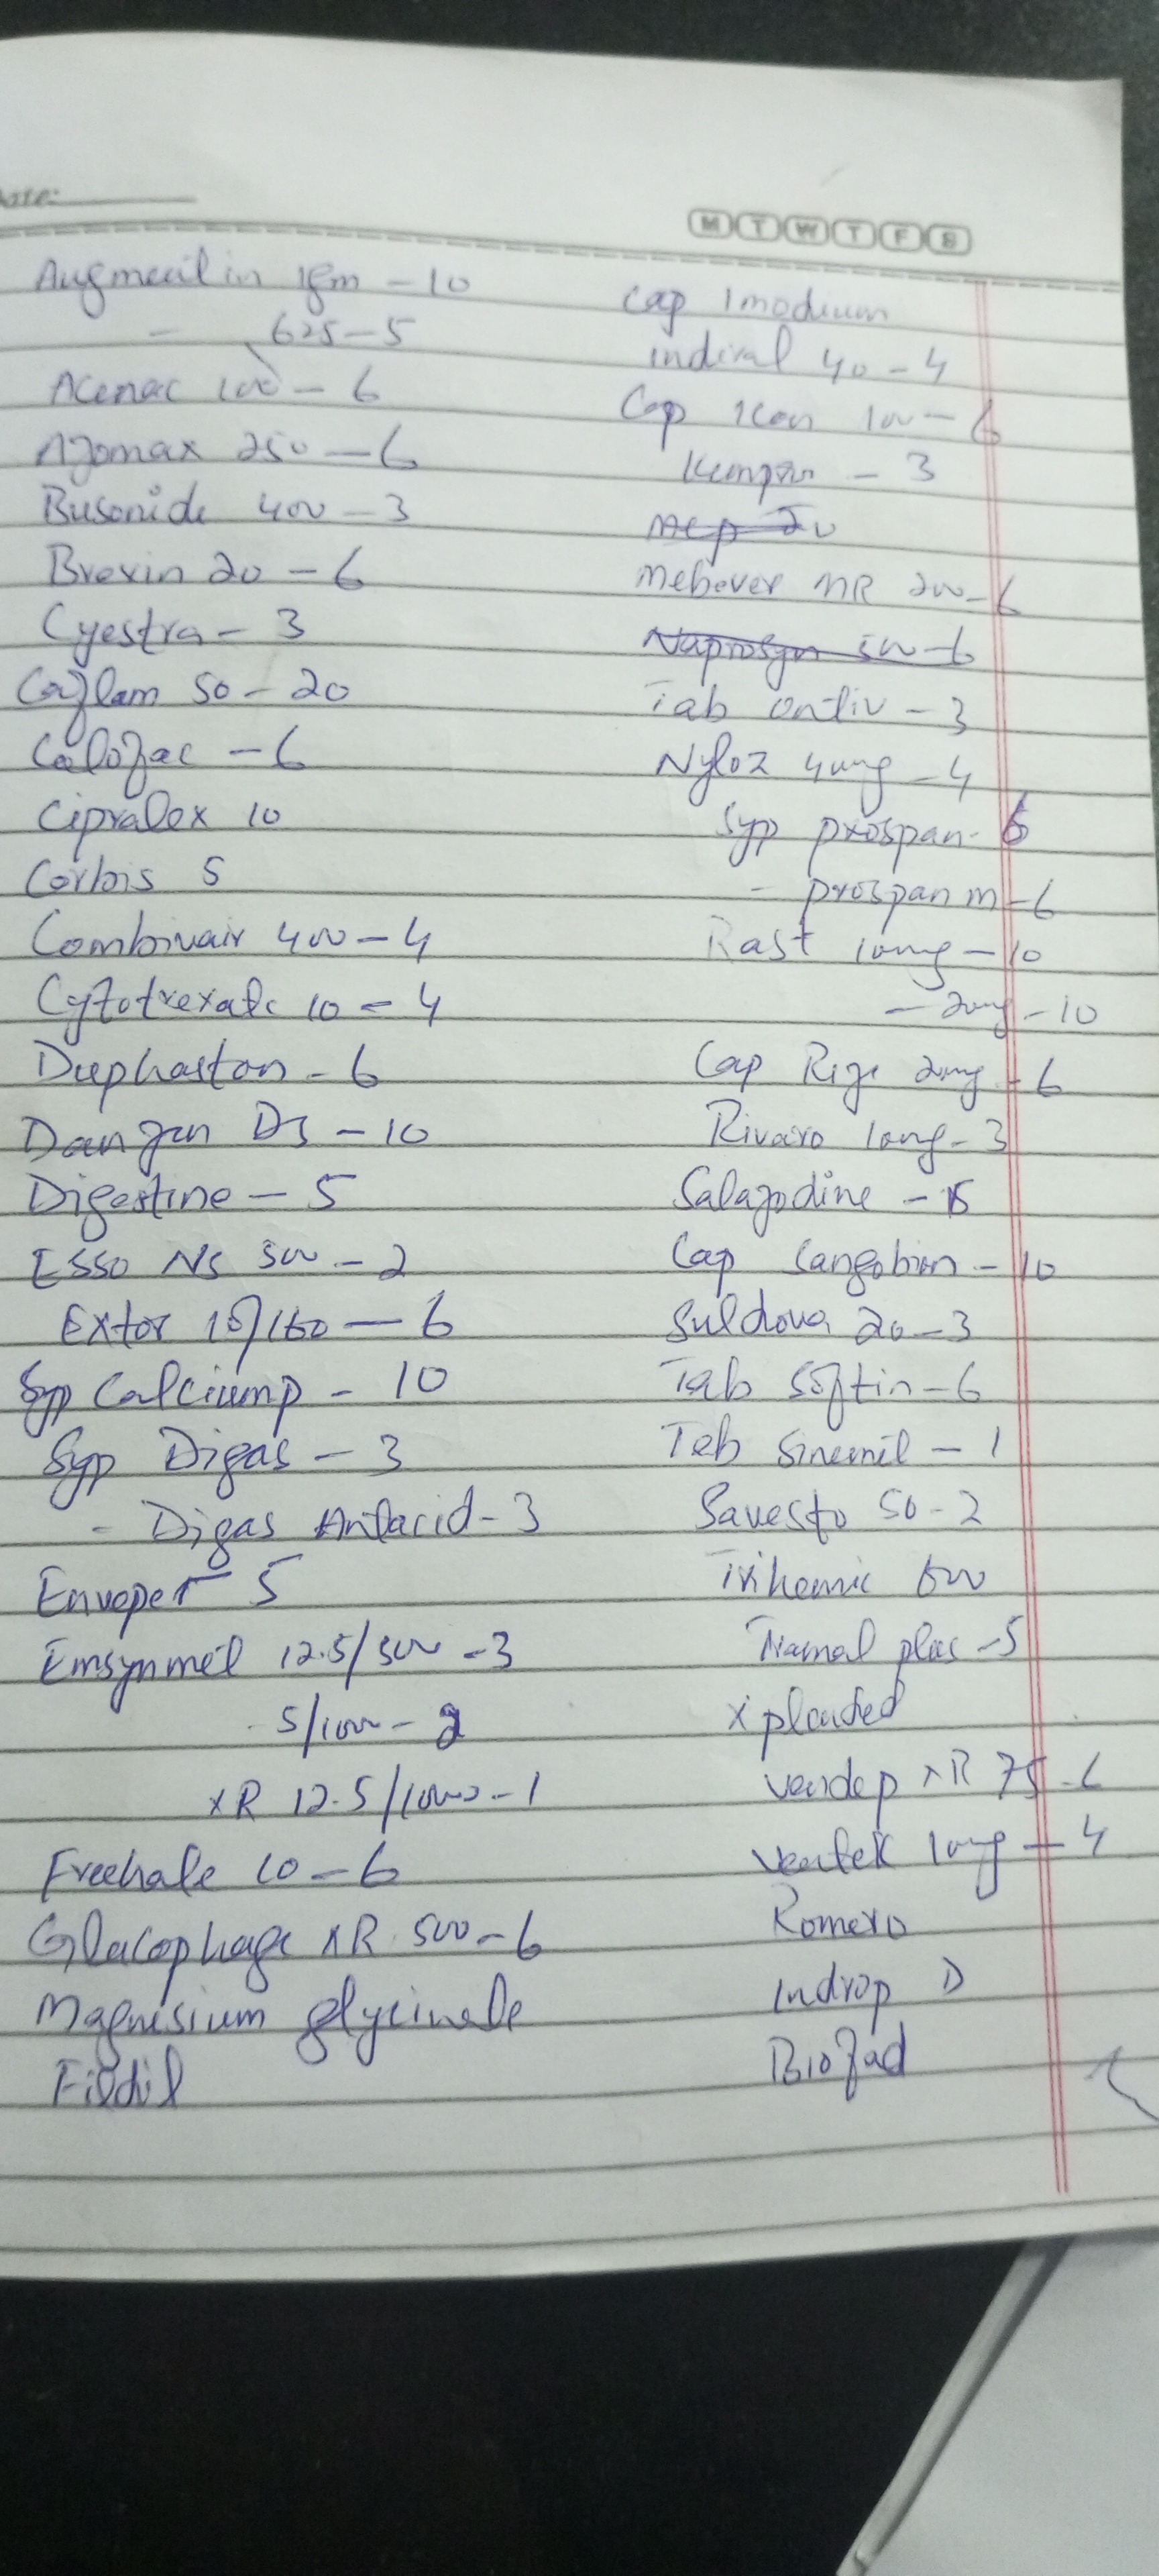 Date:
M T W T F S
Augmentin 1gm - 10
- 625 - 5
Acenac 100 - 6
Azomax 250 - 6
Busonide 400 - 3
Brexin 20 - 6
Cyestra - 3
50 - 20
Colofac - 6
Cipralex 10
Corbis 5
Combivair 400 - 4
Cytotrexate 10 - 4
Duphaston - 6
Danzen DS - 10
Digestine - 5
ESSO NS 500 - 2
Extor 10/160 - 6
Syp Calciump - 10
Syp Digas - 3
- Digas Antacid - 3
Envepe 5
Emsynmet 12.5/500 - 3
5/1000 - 2
XR 12.5/1000 - 1
Freehale 10 - 6
Glucophage XR 500 - 6
Magnesium glycinate
Fildil
Cap Imodium
Indiral 40 - 4
Cap Icon 100 - 6
- 3
Mebever MR 200 - 6
Naprosyn 500 - 6
Tab - 3
40mg - 4
Syp prospan - 6
- prospan m - 6
Rast 10mg - 10
- 20mg - 10
Cap 20mg - 6
Rivaro 10mg - 3
Salazodine - 15
Cap Sangobion - 10
20 - 3
Tab Softin - 6
Tab Sinemet - 1
Savesto 50 - 2
500
Tramal plus - 5
Xplended
Vendep XR 75 - 6
Ventek 10mg - 4
Romero
Indrop D